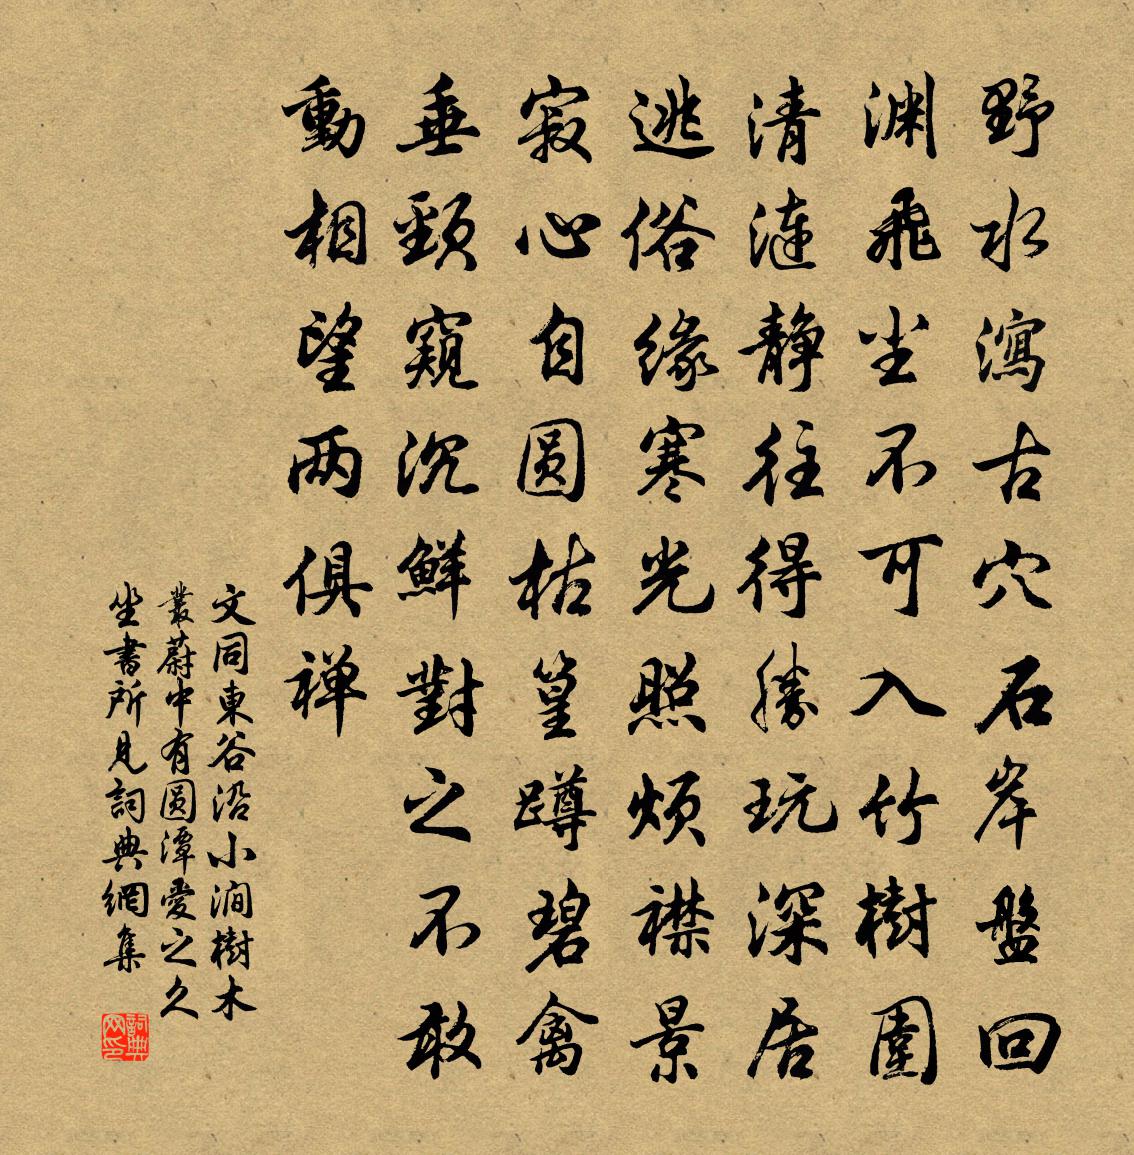 野水瀉古穴石岸盤回
渊飛尘不可入竹樹圍
清漣静往得勝玩深居
逃俗緣寒光照煩襟景
寂心自圆枯篁蹲碧禽
垂頸窺沉鮮對之不敢
動相望两俱禅
文同東谷沿小澗樹木
叢蔚中有圆潭愛之久
坐書所見詞典網集
詞典网印